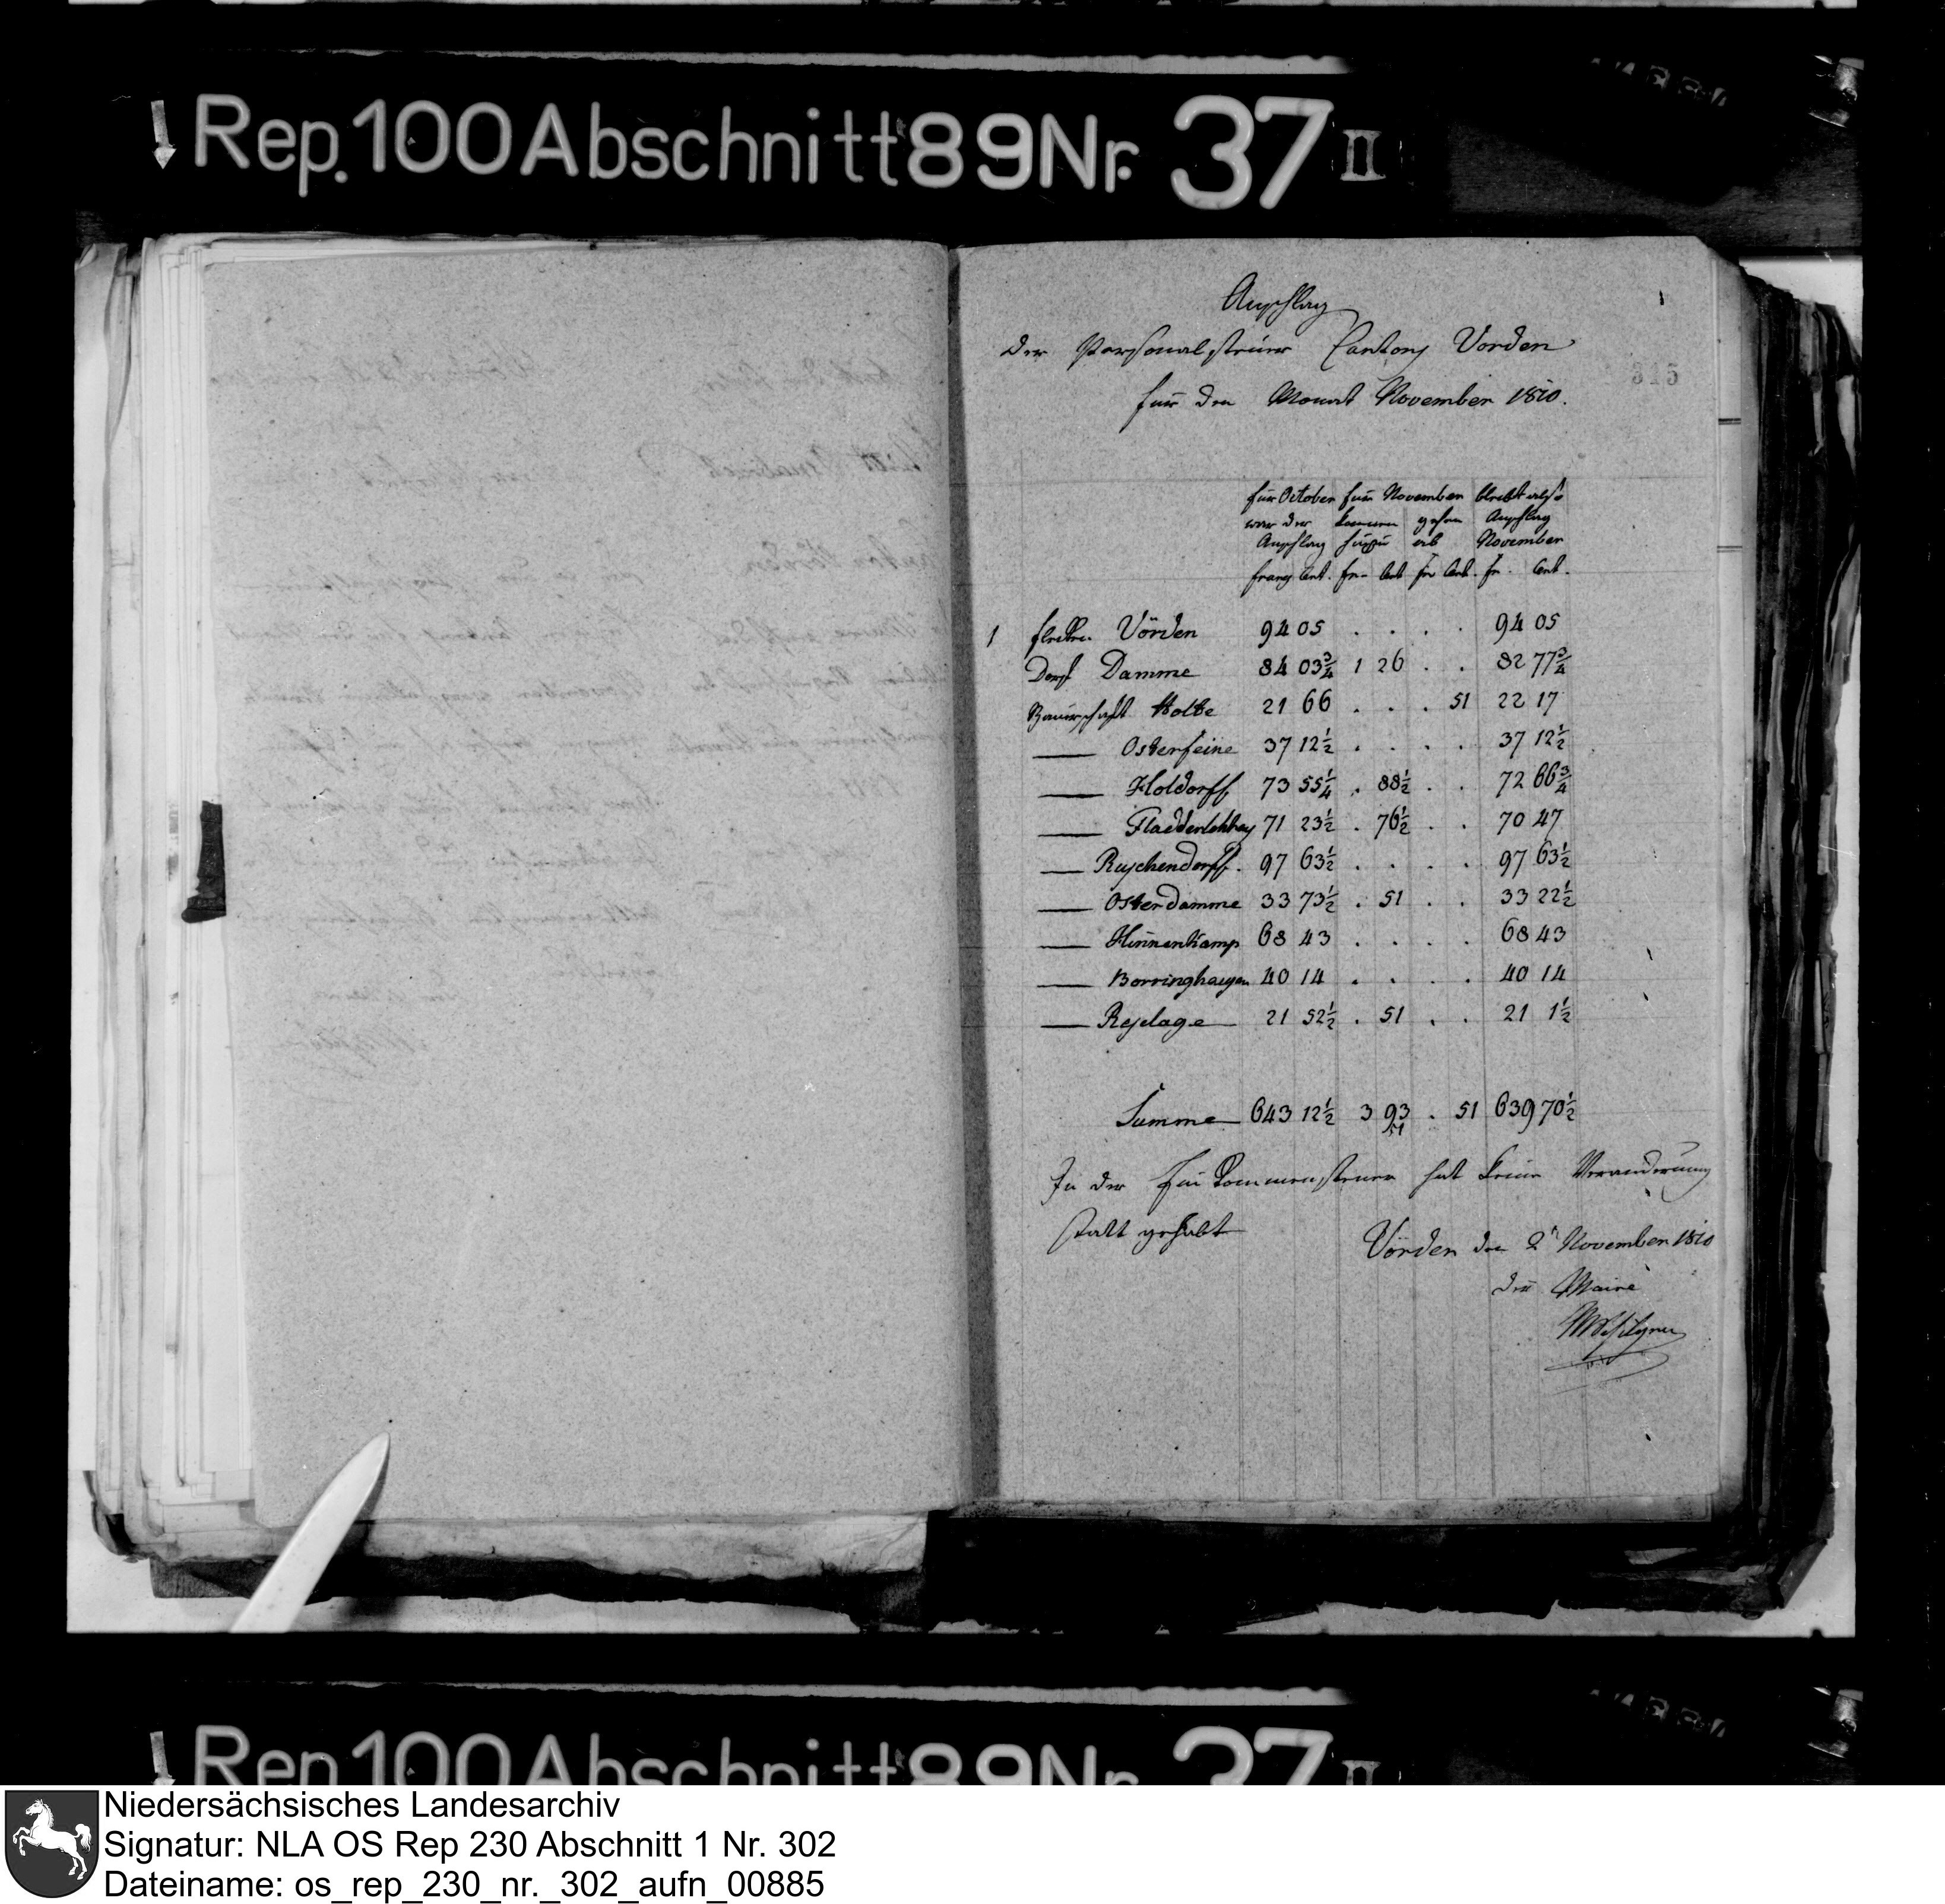 Rep. 100 Abschnitt 89 Nr. 37 II
Anschlag
der Personalsteuer Cantons Vörden
für den Monat November 1810.
315
für October für November bleibt also
war der kommen gehen Anschlag
Anschlag hinzu ab November
Frang Cent. Fr. Cent Fr Cent. Fr. Cent.
1 Flecken Vörden 94 05 . . . . 94 05
Dorf Damme 84 03 3/4 1 26 . . 82 77 3/4
Bauerschaft Holte 21 66 . . . 51 22 17
—— Osterfeine 37 12 1/2 . . . . 37 12 1/2
—— Holdorff 73 55 1/4 . 88 1/2 . . 72 66 3/4
—— Fladderlohhausen 71 23 1/2 . 76 1/2 . . 70 47
—— Ruschendorff. 97 63 1/2 . . . . 97 63 1/2
—— Osterdamme 33 73 1/2 . 51 . . 33 22 1/2
—— Hinnenkamp 68 43 . . . . 68 43
—— Borringhausen 40 14 . . . . 40 14
—— Reselage 21 52 1/2 . 51 . . 21 1 1/2
Summe 643 12 1/2 3 93 . 51 639 70 1/2
In der Einkommensteuer hat keine Veranderung
statt gehabt
Vörden den 2n November 1810
der Maire
Rep. 100 Abschnitt 89 Nr. 37 II
Niedersächsisches Landesarchiv
Signatur: NLA OS Rep 230 Abschnitt 1 Nr. 302
Dateiname: os_rep_230_nr._302_aufn_00885